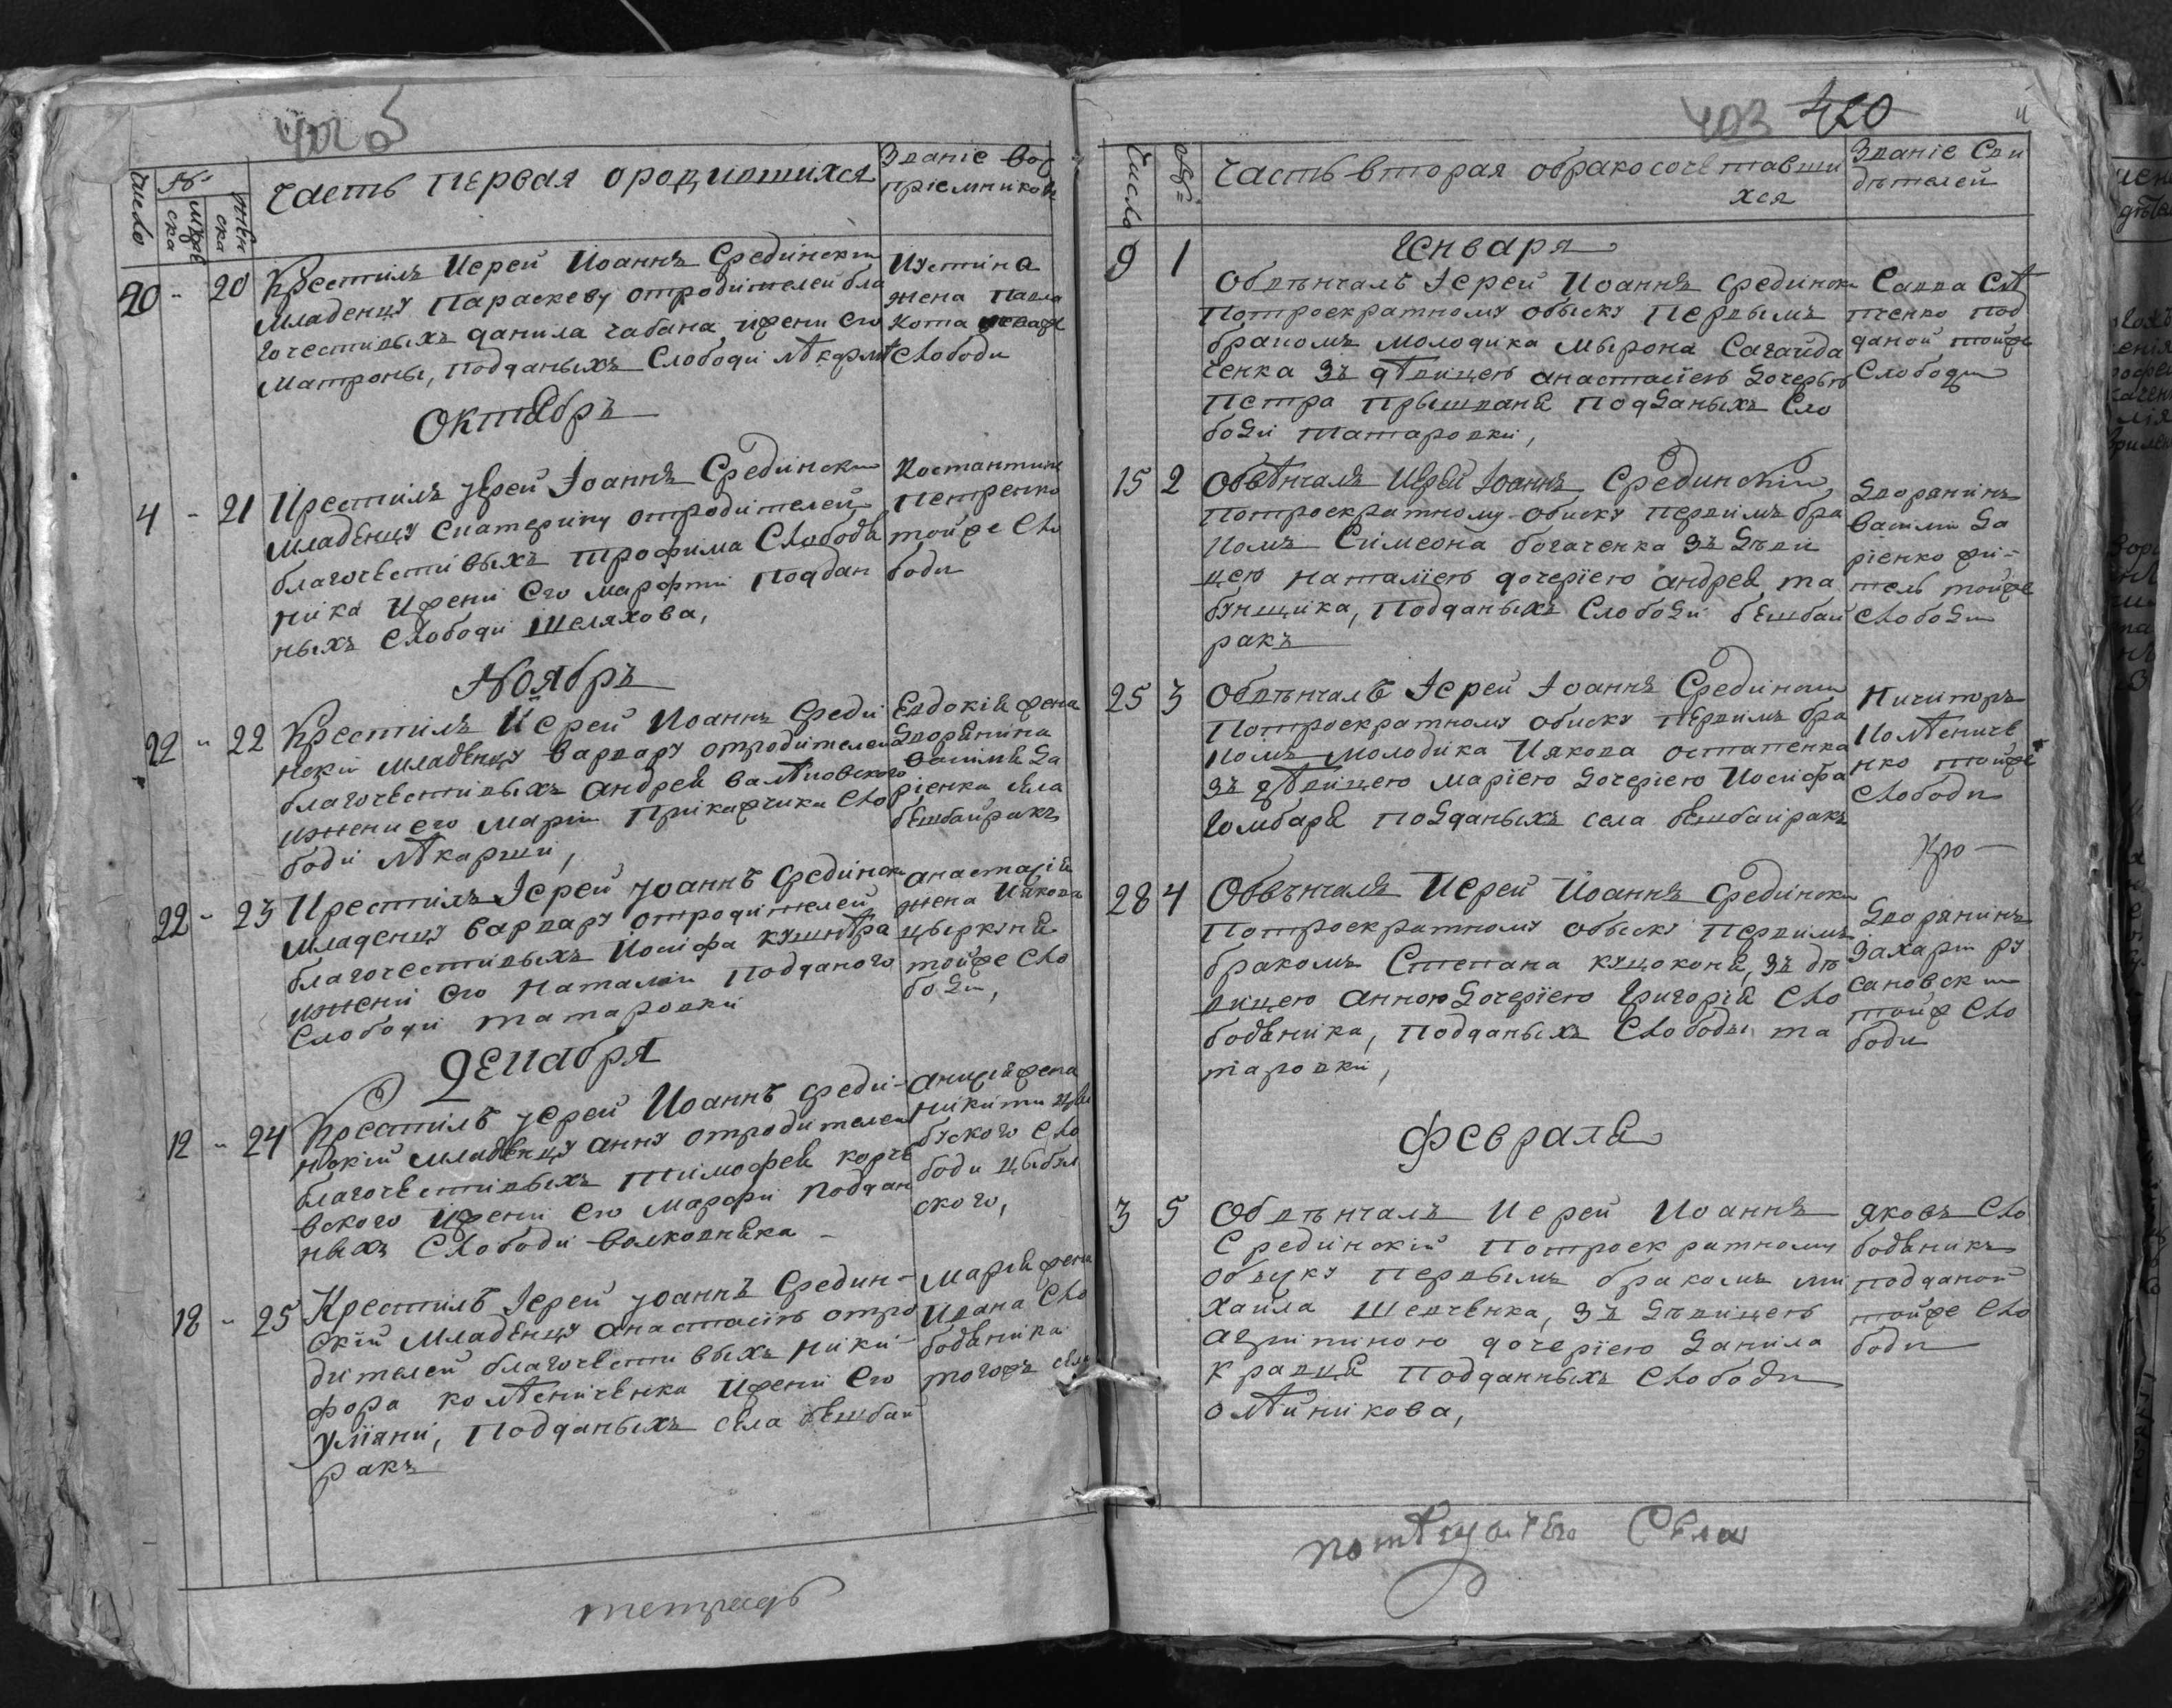 402 об
Число
№
мужеска
женска
Часть первая ородившихся
Званіе вос
пріемников
20 - 20
Крестилъ Иерей Иоаннъ Средински
младенцу Параскеву отродителей бла
гочестивыхъ данила чабана ижени его
Матроны, подданыхъ Слободи
Иустина
жена Павла
Кота
слободи
Октябръ
4 - 21
Крестилъ Іерей Іоаннъ Средински
младенцу Екатерину отродителей
благочестивыхъ трофима Слободя
ника Ижени Его марфти поддан
ныхъ Слободи Шеляхова,
Костантинъ
Петренко
тойже сло
боди
Ноябръ
22 - 22
Крестилъ Иерей Иоаннъ Среди
нский младенцу варвару отродителей
благочестивыхъ андрея валѣновского
ижени его Маріи Прикажчика сло
боди
Евдокія жена
дворянина
василия да
ріенка села
бешбайракъ
22 - 23
Крестилъ Іерей Иоаннъ Срединск
младенцу варвару отродителей
благочестивыхъ Иосифа кушнѣра
ижени его Наталіи подданого
Слободи татаровки
анастасія
жена Иякова
цыркуна
тойже сло
боди,
Декабря
12 - 24
Крестилъ Іерей Иоаннъ среди-
нский младенцу анну отродителей
благочестивыхъ тимофея корче
вского Ижени его Марфи поддан
ныхъ Слободи волковенька -
жена
никити
буского сло
боди цыбул
ского,
18 - 25
Крестилъ Іерей Иоаннъ Средин-
скій младенцу анастасію отро
дителей благочестивыхъ ники-
фора колѣниченка Ижени Его
улияни, подданыхъ села бешбай
ракъ
Марія жена
Ивана сло
бодяника
тогожъ села
тетрадь
403 420
Число
№
Часть вторая обракосочетавши
хся
Званіе Сви
дѣтелей
Генваря
9 1
Обвѣнчалъ Іерей Иоаннъ Срединск
Потроекратному обыску первымъ
бракомъ молодика мырона Сагайда
ченка зъ дѣвицею анастасіею дочерью
петра прышвана подданыхъ Сло
боди Татаровки,
Савва Сит
ченко под
даной тойже
Слободи
15 2
Обвѣнчалъ Иерей Іоаннъ Срединскій
потроекратному обиску первимъ бра
комъ Симеона богаченка зъ дѣви
цею Наталіею дочеріею андрея та
бунщика, подданыхъ Слободи бешбай
ракъ
дворянинъ
василий да
ріенко жи-
тель тойже
слободи
25 3
Обвѣнчалъ Іерей Іоаннъ Срединский
Потроекратному обиску первимъ бра
комъ молодика Иякова остапенка
зъ дѣвицею маріею дочеріею Иосифа
гомбаря подданыхъ села бешбайракъ
Кичиторъ
Колѣниче
нко тойже
слободи
Кро-
28 4
Обвѣнчалъ Иерей Иоаннъ Срединск
Потроекратному обыску первимъ
бракомъ Степана куцоконя, зъ дѣ
вицею анною дочеріею Григорія сло
бодяника, подданыхъ слободы та
таровки,
дворянинъ
Захарій ру
сановский
тойж сло
боди
Февраля
3 5
Обвѣнчалъ Иерей Иоаннъ
Срединскій потроекратному
обыску первымъ бракомъ ми
хаила Шевченка, зъ дѣвицею
агрипиною дочеріею данила
кравця подданныхъ слободи
олѣйникова,
яковъ сло
бодяникъ
подданой
тойже сло
боди
Села